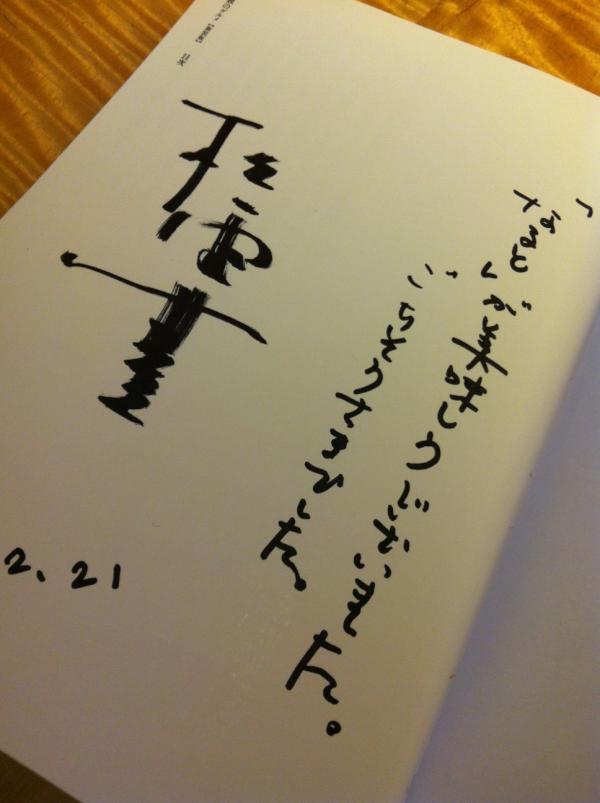 「なると」が美味しうございました。
ごちそうさまでした。
2.21